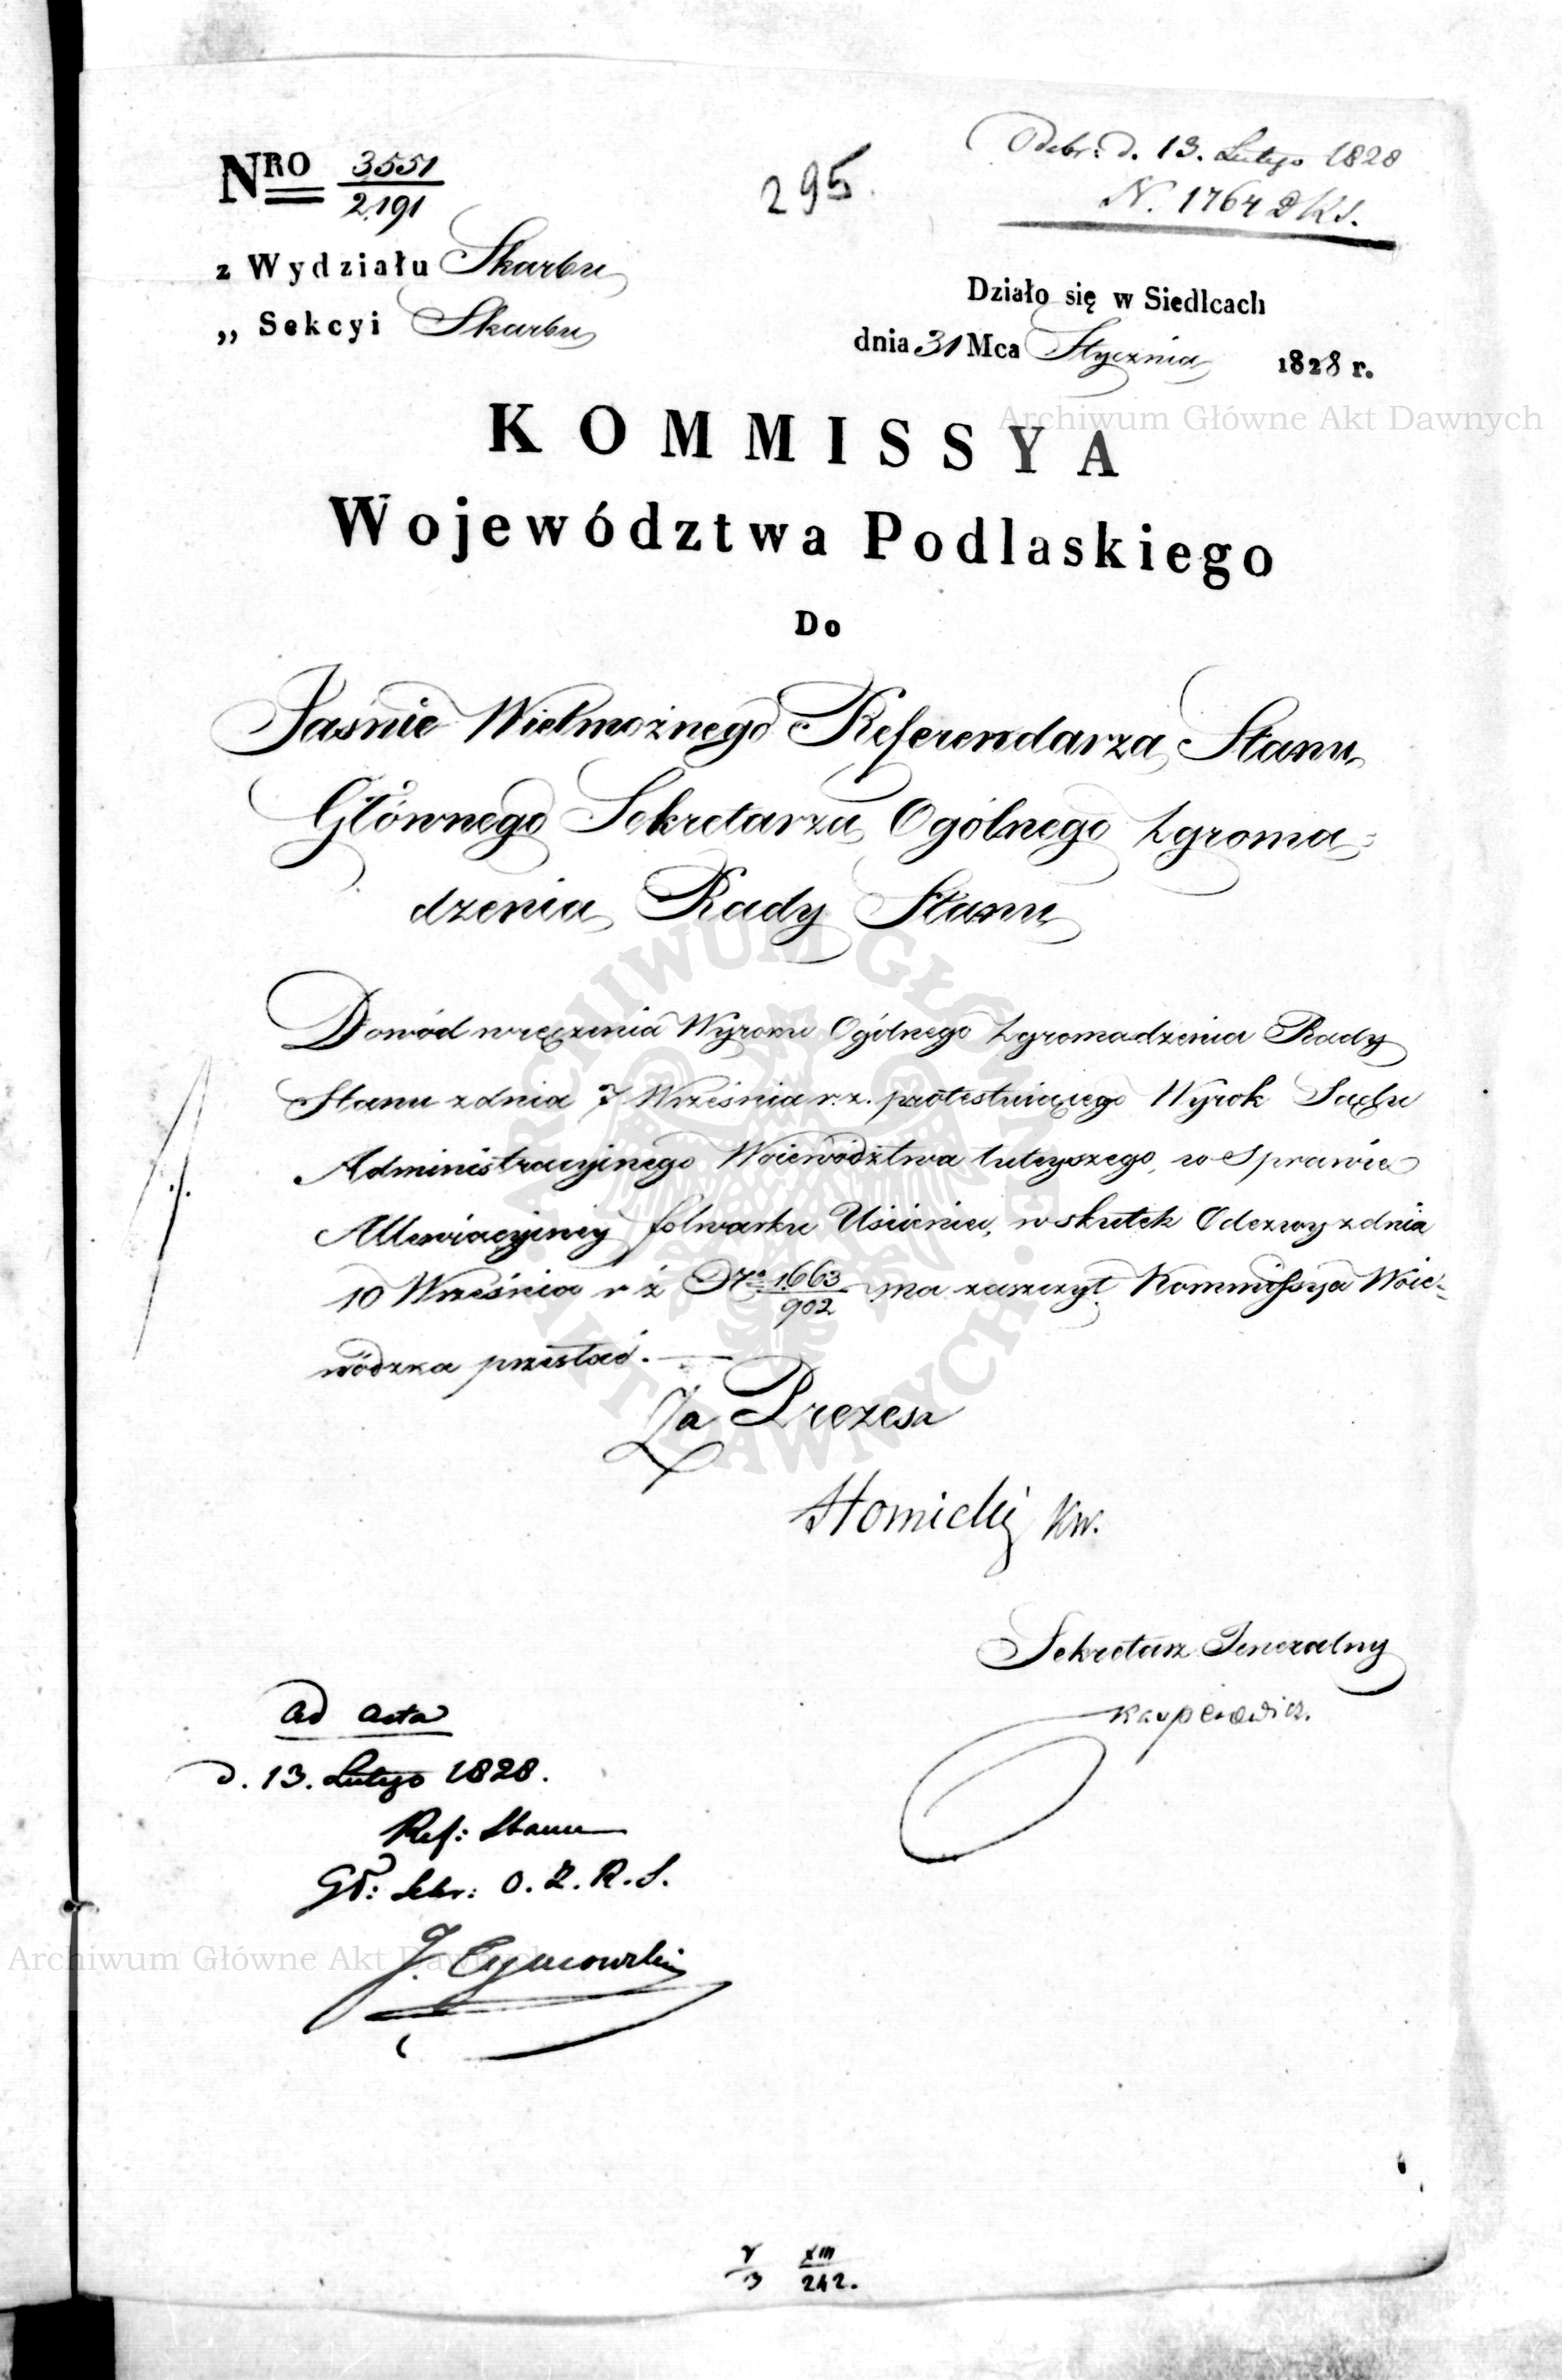 Nro 3551/2191
295.
Odebr: d. 13. Lutego 1828
N. 1764 DKS.
z Wydziału Skarbu
„ Sekcyi Skarbu
Działo się w Siedlcach
dnia 31 Mca Stycznia 1828 r.
KOMMISSYA
Województwa Podlaskiego
Do
Jaśnie Wielmożnego Referendarza Stanu
Głównego Sekretarza Ogólnego Zgroma=
dzenia Rady Stanu
Dowód wręczenia Wyroku Ogólnego Zgromadzenia Rady
Stanu z dnia 7 Września r. z. Wyrok Sądu
Administracyjnego Woiewództwa tuteyszego, w Sprawie
Allewiacyjney folwarku w skutek Odezwy z dnia
10 Września r z Nro 1663/902 ma zaszczyt Kommissya Woie=
wódzka przesłać.
Za Prezesa
Homicki KW.
Sekretarz Jeneralny
ad acta
d. 13. Lutego 1828.
Ref: Stanu
Gł: Sekr: O. Z. R. S.
J.
V/3 XIII/242.
Archiwum Główne Akt Dawnych
Archiwum Główne Akt Dawnych
ARCHIWUM GŁÓWNE AKT DAWNYCH